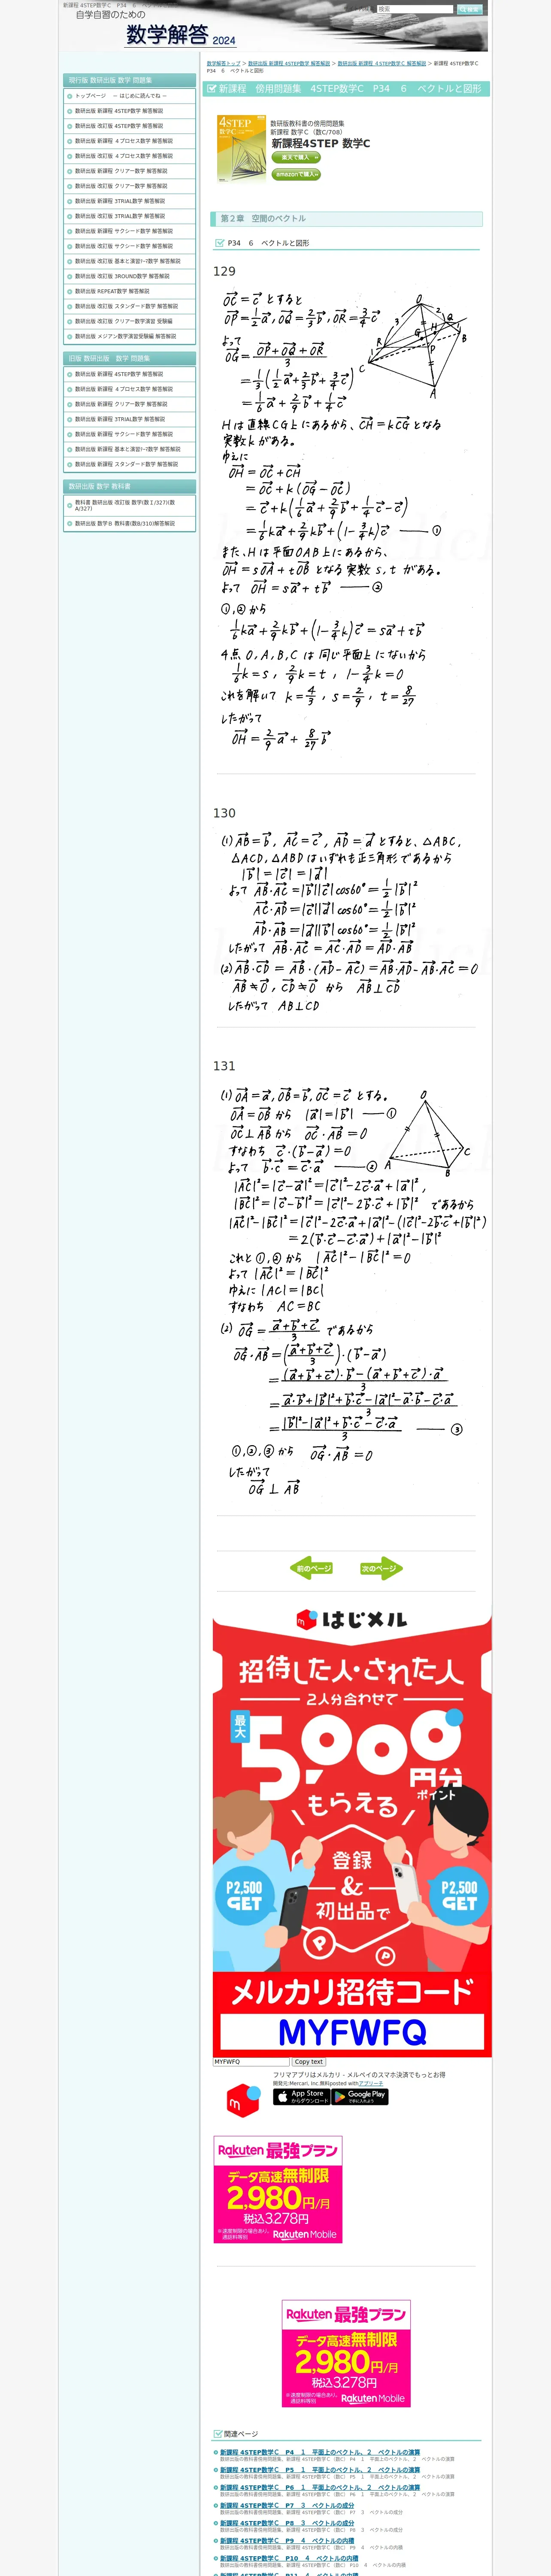 新課程 4STEP数学C P34 6 ベクトルと図形
自学自習のための
数学解答 2024
検索
数学解答トップ > 数研出版 新課程 4STEP数学 解答解説 > 数研出版 新課程 4STEP数学C 解答解説 > 新課程 4STEP数学C
P34 6 ベクトルと図形
現行版 数研出版 数学 問題集
トップページ － はじめに読んでね －
数研出版 新課程 4STEP数学 解答解説
数研出版 改訂版 4STEP数学 解答解説
数研出版 新課程 4プロセス数学 解答解説
数研出版 改訂版 4プロセス数学 解答解説
数研出版 新課程 クリアー数学 解答解説
数研出版 改訂版 クリアー数学 解答解説
数研出版 新課程 3TRIAL数学 解答解説
数研出版 改訂版 3TRIAL数学 解答解説
数研出版 新課程 サクシード数学 解答解説
数研出版 改訂版 サクシード数学 解答解説
数研出版 改訂版 基本と演習ﾃｰﾏ数学 解答解説
数研出版 改訂版 3ROUND数学 解答解説
数研出版 REPEAT数学 解答解説
数研出版 改訂版 スタンダード数学 解答解説
数研出版 改訂版 クリアー数学演習 受験編
数研出版 メジアン数学演習受験編 解答解説
旧版 数研出版 数学 問題集
数研出版 新課程 4STEP数学 解答解説
数研出版 新課程 4プロセス数学 解答解説
数研出版 新課程 クリアー数学 解答解説
数研出版 新課程 3TRIAL数学 解答解説
数研出版 新課程 サクシード数学 解答解説
数研出版 新課程 基本と演習ﾃｰﾏ数学 解答解説
数研出版 新課程 スタンダード数学 解答解説
数研出版 数学 教科書
教科書 数研出版 改訂版 数学(数Ⅰ/327)(数
A/327)
数研出版 数学B 教科書(数B/310)解答解説
新課程 傍用問題集 4STEP数学C P34 6 ベクトルと図形
4STEP
数学C
数研出版教科書の傍用問題集
新課程 数学C（数C/708）
新課程4STEP 数学C
楽天で購入 »
amazonで購入 »
第2章 空間のベクトル
P34 6 ベクトルと図形
129
OC→ = c→ とすると
OP→=1/2a→, OQ→=2/3b→, OR→=3/4c→
よって
OG→ = (OP→+OQ→+OR→)/3
=1/3(1/2a→+2/3b→+3/4c→)
=1/6a→+2/9b→+1/4c→
Hは直線CG上にあるから、CH→=kCG→となる
実数kがある。
ゆえに
OH→ = OC→+CH→
=c→+k(OG→-c→)
=c→+k(1/6a→+2/9b→+1/4c→-c→)
=1/6ka→+2/9kb→+(1-3/4k)c→ ——①
また、Hは平面OAB上にあるから、
OH→=sOA→+tOB→となる実数s,tがある。
よって OH→=sa→+tb→ ——②
①,②から
1/6ka→+2/9kb→+(1-3/4k)c→=sa→+tb→
4点O,A,B,Cは同じ平面上にないから
1/6k=s, 2/9k=t, 1-3/4k=0
これを解いて k=4/3, s=2/9, t=8/27
したがって
OH→=2/9a→+8/27b→
130
(1)AB→=b→, AC→=c→, AD→=d→とすると、△ABC,
△ACD,△ABDはいずれも正三角形であるから
|b→|=|c→|=|d→|
よって AB→·AC→=|b→||c→|cos60°=1/2|b→|²
AC→·AD→=|c→||d→|cos60°=1/2|b→|²
AD→·AB→=|d→||b→|cos60°=1/2|b→|²
したがって AB→·AC→=AC→·AD→=AD→·AB→
(2)AB→·CD→=AB→·(AD→-AC→)=AB→·AD→-AB→·AC→=0
AB→≠0→, CD→≠0→ から AB→⊥CD→
したがって AB⊥CD
131
(1)OA→=a→,OB→=b→,OC→=c→とする。
OA=OBから |a→|=|b→| ——①
OC⊥ABから OC→·AB→=0
すなわち c→·(b→-a→)=0
よって b→·c→=c→·a→ ——②
|AC→|²=|c→-a→|²=|c→|²-2c→·a→+|a→|²,
|BC→|²=|c→-b→|²=|c→|²-2b→·c→+|b→|² であるから
|AC→|²-|BC→|²=|c→|²-2c→·a→+|a→|²-(|c→|²-2b→·c→+|b→|²)
=2(b→·c→-c→·a→)+|a→|²-|b→|²
これと①,②から |AC→|²-|BC→|²=0
よって|AC→|²=|BC→|²
ゆえに |AC|=|BC|
すなわち AC=BC
(2) OG→=(a→+b→+c→)/3 であるから
OG→·AB→=((a→+b→+c→)/3)·(b→-a→)
=((a→+b→+c→)·b→-(a→+b→+c→)·a→)/3
=(a→·b→+|b→|²+b→·c→-|a→|²-a→·b→-c→·a→)/3
=(|b→|²-|a→|²+b→·c→-c→·a→)/3 ——③
①,②,③から OG→·AB→=0
したがって
OG⊥AB
前のページ 次のページ
はじメル
招待した人・された人
2人分合わせて
最大
5,000円分
ポイント
もらえる
登録
&
初出品で
P2,500
GET
P2,500
GET
メルカリ招待コード
MYFWFQ
MYFWFQ Copy text
フリマアプリはメルカリ - メルペイのスマホ決済でもっとお得
開発元:Mercari, Inc.無料posted withアプリーチ
App Store
からダウンロード
Google Play
で手に入れよう
Rakuten 最強プラン
データ高速無制限
2,980円/月
税込3,278円
※速度制限の場合あり。
通話料等別
Rakuten Mobile
Rakuten 最強プラン
データ高速無制限
2,980円/月
税込3,278円
※速度制限の場合あり。
通話料等別
Rakuten Mobile
関連ページ
新課程 4STEP数学C P4 1 平面上のベクトル、2 ベクトルの演算
数研出版の教科書傍用問題集、新課程 4STEP数学C（数C） P4 1 平面上のベクトル、2 ベクトルの演算
新課程 4STEP数学C P5 1 平面上のベクトル、2 ベクトルの演算
数研出版の教科書傍用問題集、新課程 4STEP数学C（数C） P5 1 平面上のベクトル、2 ベクトルの演算
新課程 4STEP数学C P6 1 平面上のベクトル、2 ベクトルの演算
数研出版の教科書傍用問題集、新課程 4STEP数学C（数C） P6 1 平面上のベクトル、2 ベクトルの演算
新課程 4STEP数学C P7 3 ベクトルの成分
数研出版の教科書傍用問題集、新課程 4STEP数学C（数C） P7 3 ベクトルの成分
新課程 4STEP数学C P8 3 ベクトルの成分
数研出版の教科書傍用問題集、新課程 4STEP数学C（数C） P8 3 ベクトルの成分
新課程 4STEP数学C P9 4 ベクトルの内積
数研出版の教科書傍用問題集、新課程 4STEP数学C（数C） P9 4 ベクトルの内積
新課程 4STEP数学C P10 4 ベクトルの内積
数研出版の教科書傍用問題集、新課程 4STEP数学C（数C） P10 4 ベクトルの内積